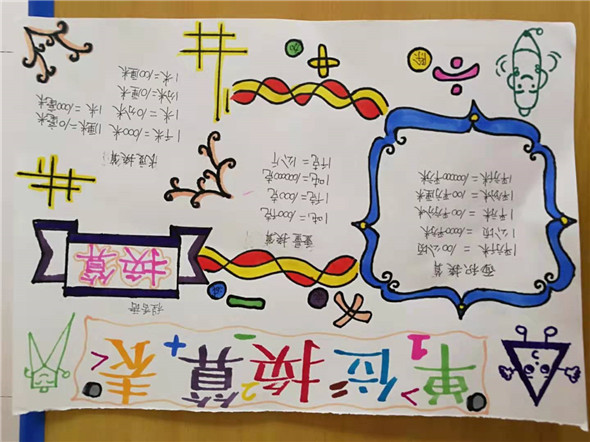 单位换算表
换算
面积换算
1平方千米=100公顷
1公顷=10000平方米
1平方米=100平方分米
1平方分米=100平方厘米
1平方千米=1000000平方米
重量换算
1吨=1000千克
1千克=1000克
1吨=1000000克
1千克=1公斤
长度换算
1千米=1000米
1米=10分米
1分米=10厘米
1米=100厘米
1厘米=10毫米
1米=1000毫米